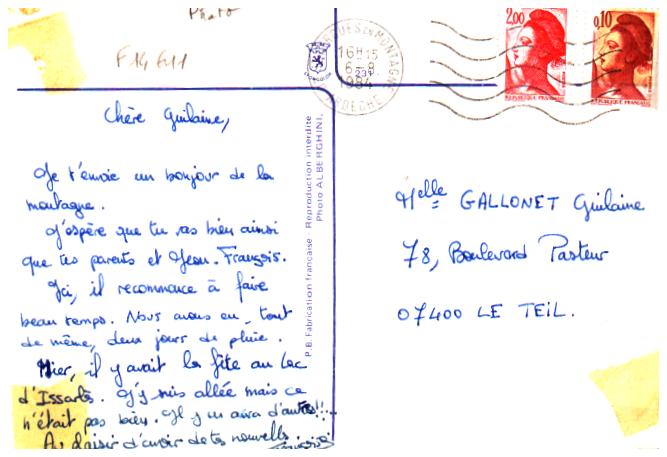 Photo
F14 611
16H15
6-8
1984
ARDECHE
2,00
0,10
REPUBLIQUE FRANÇAISE
REPUBLIQUE FRANÇAISE
Chère Guilaine,
Je t'envoie un bonjour de la
montagne.
J'espère que tu vas bien ainsi
que tes parents et Jean-François.
Ici, il recommence à faire
beau temps. Nous avons eu, tout
de même, deux jours de pluie.
Hier, il y avait la fête au Lac
d'Issarlès. J'y suis allée mais ce
n'était pas bien. Il y en aura d'autres!!..
Au plaisir d'avoir de tes nouvelles.
P.B. Fabrication française - Reproduction interdite
Photo ALBERGHINI.
Melle GALLONET Guilaine
78, Boulevard Pasteur
07400 LE TEIL.